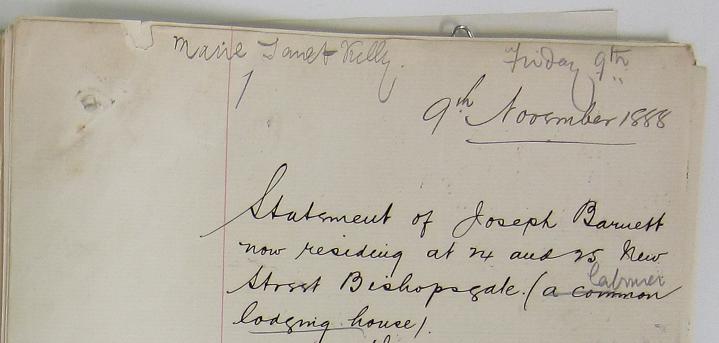 Marie Janet Kelly. Friday 9th
1
9th November 1888
Statement of Joseph Barnett
now residing at 24 and 25 New
labourer
Street Bishopsgate. (a common
lodging house).